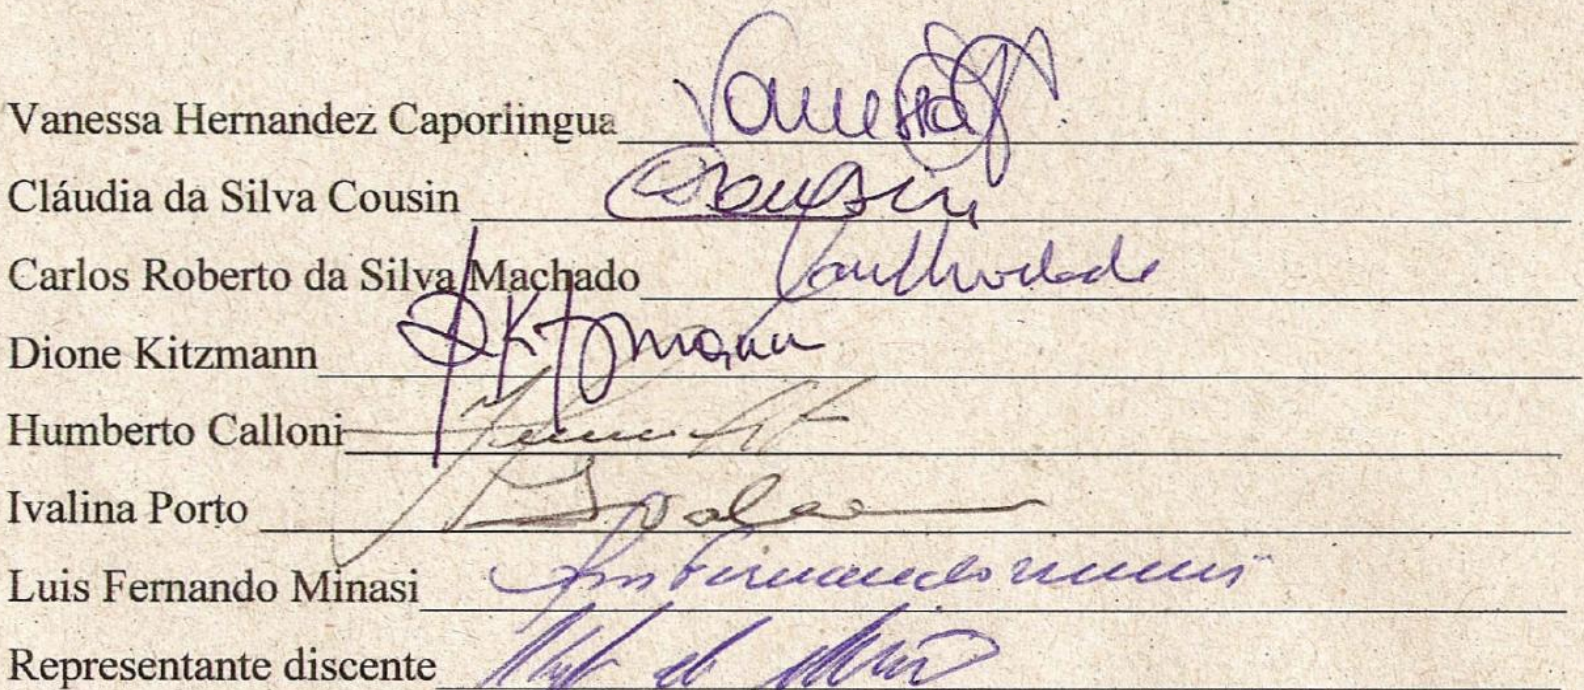 Vanessa Hernandez Caporlingua Vanessa
Cláudia da Silva Cousin CCousin
Carlos Roberto da Silva Machado
Dione Kitzmann DKitzmann
Humberto Calloni
Ivalina Porto
Luis Fernando Minasi Luis Fernando Minasi
Representante discente